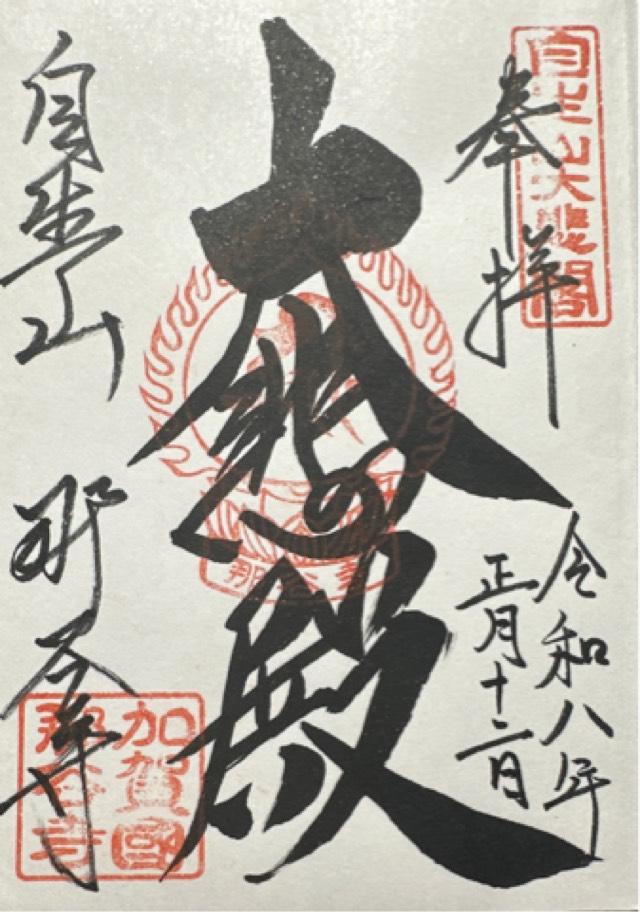 奉拝
自生山大悲閣
令和八年
正月十二日
大悲殿
那谷寺
自生山
那谷寺
加賀國
那谷寺